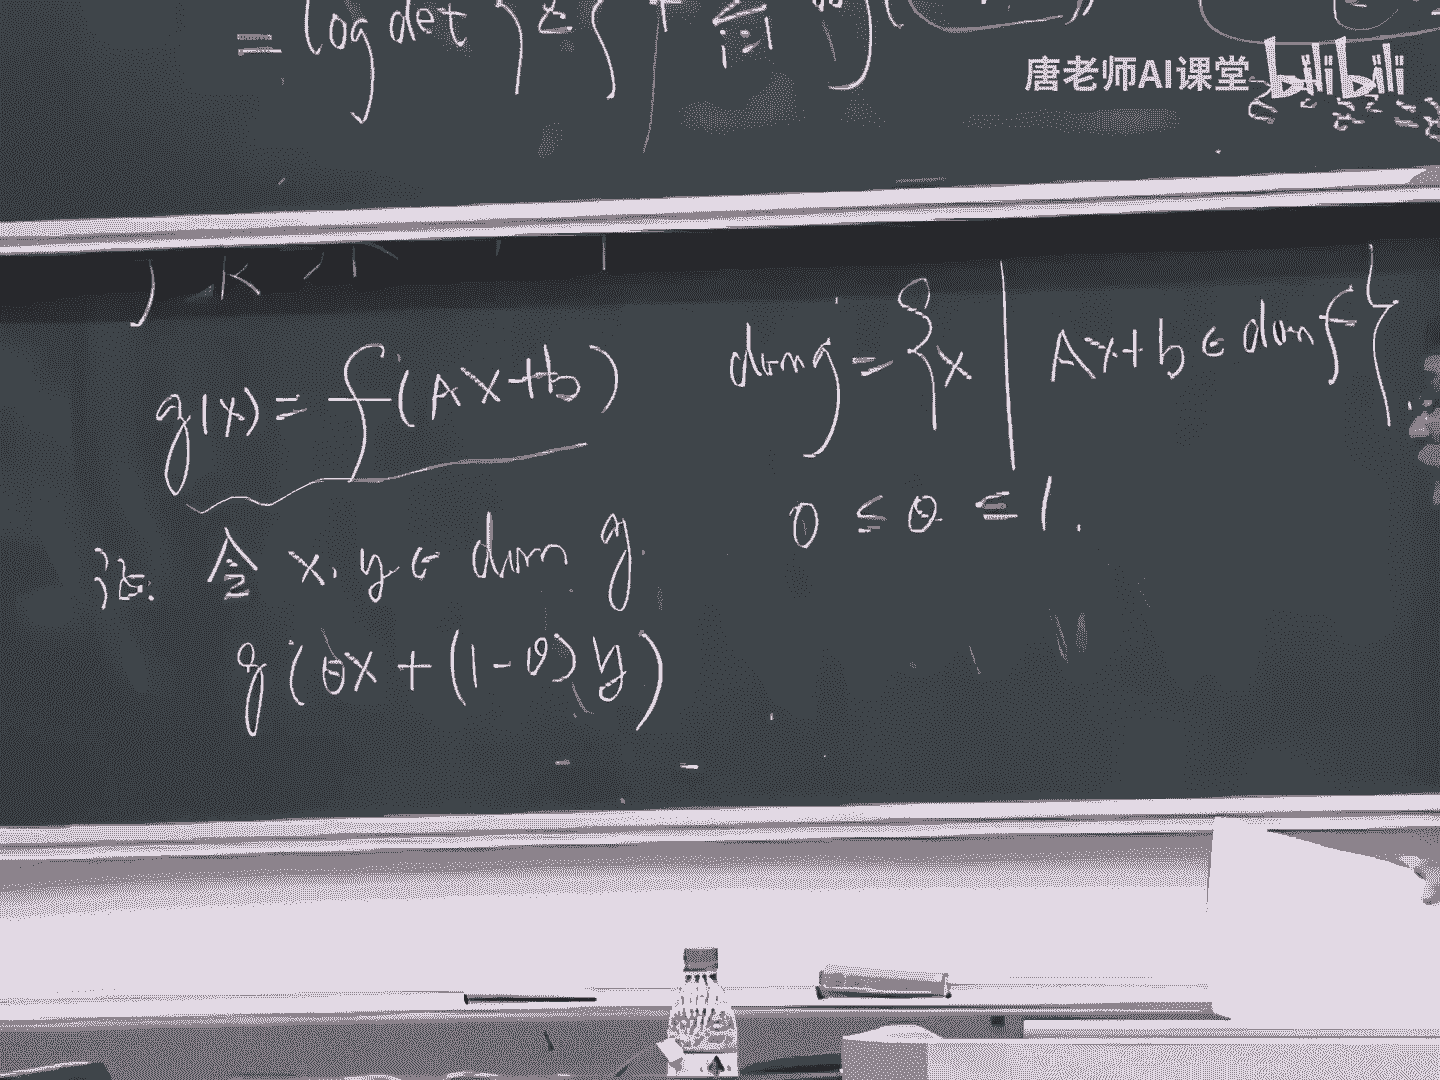 = log det
唐老师AI课堂 bilibili
g(x) = f(Ax+b) dom g = { x | Ax+b ∈ dom f }.
证: 令 x, y ∈ dom g. 0 ≤ θ ≤ 1.
g(θx + (1-θ)y)